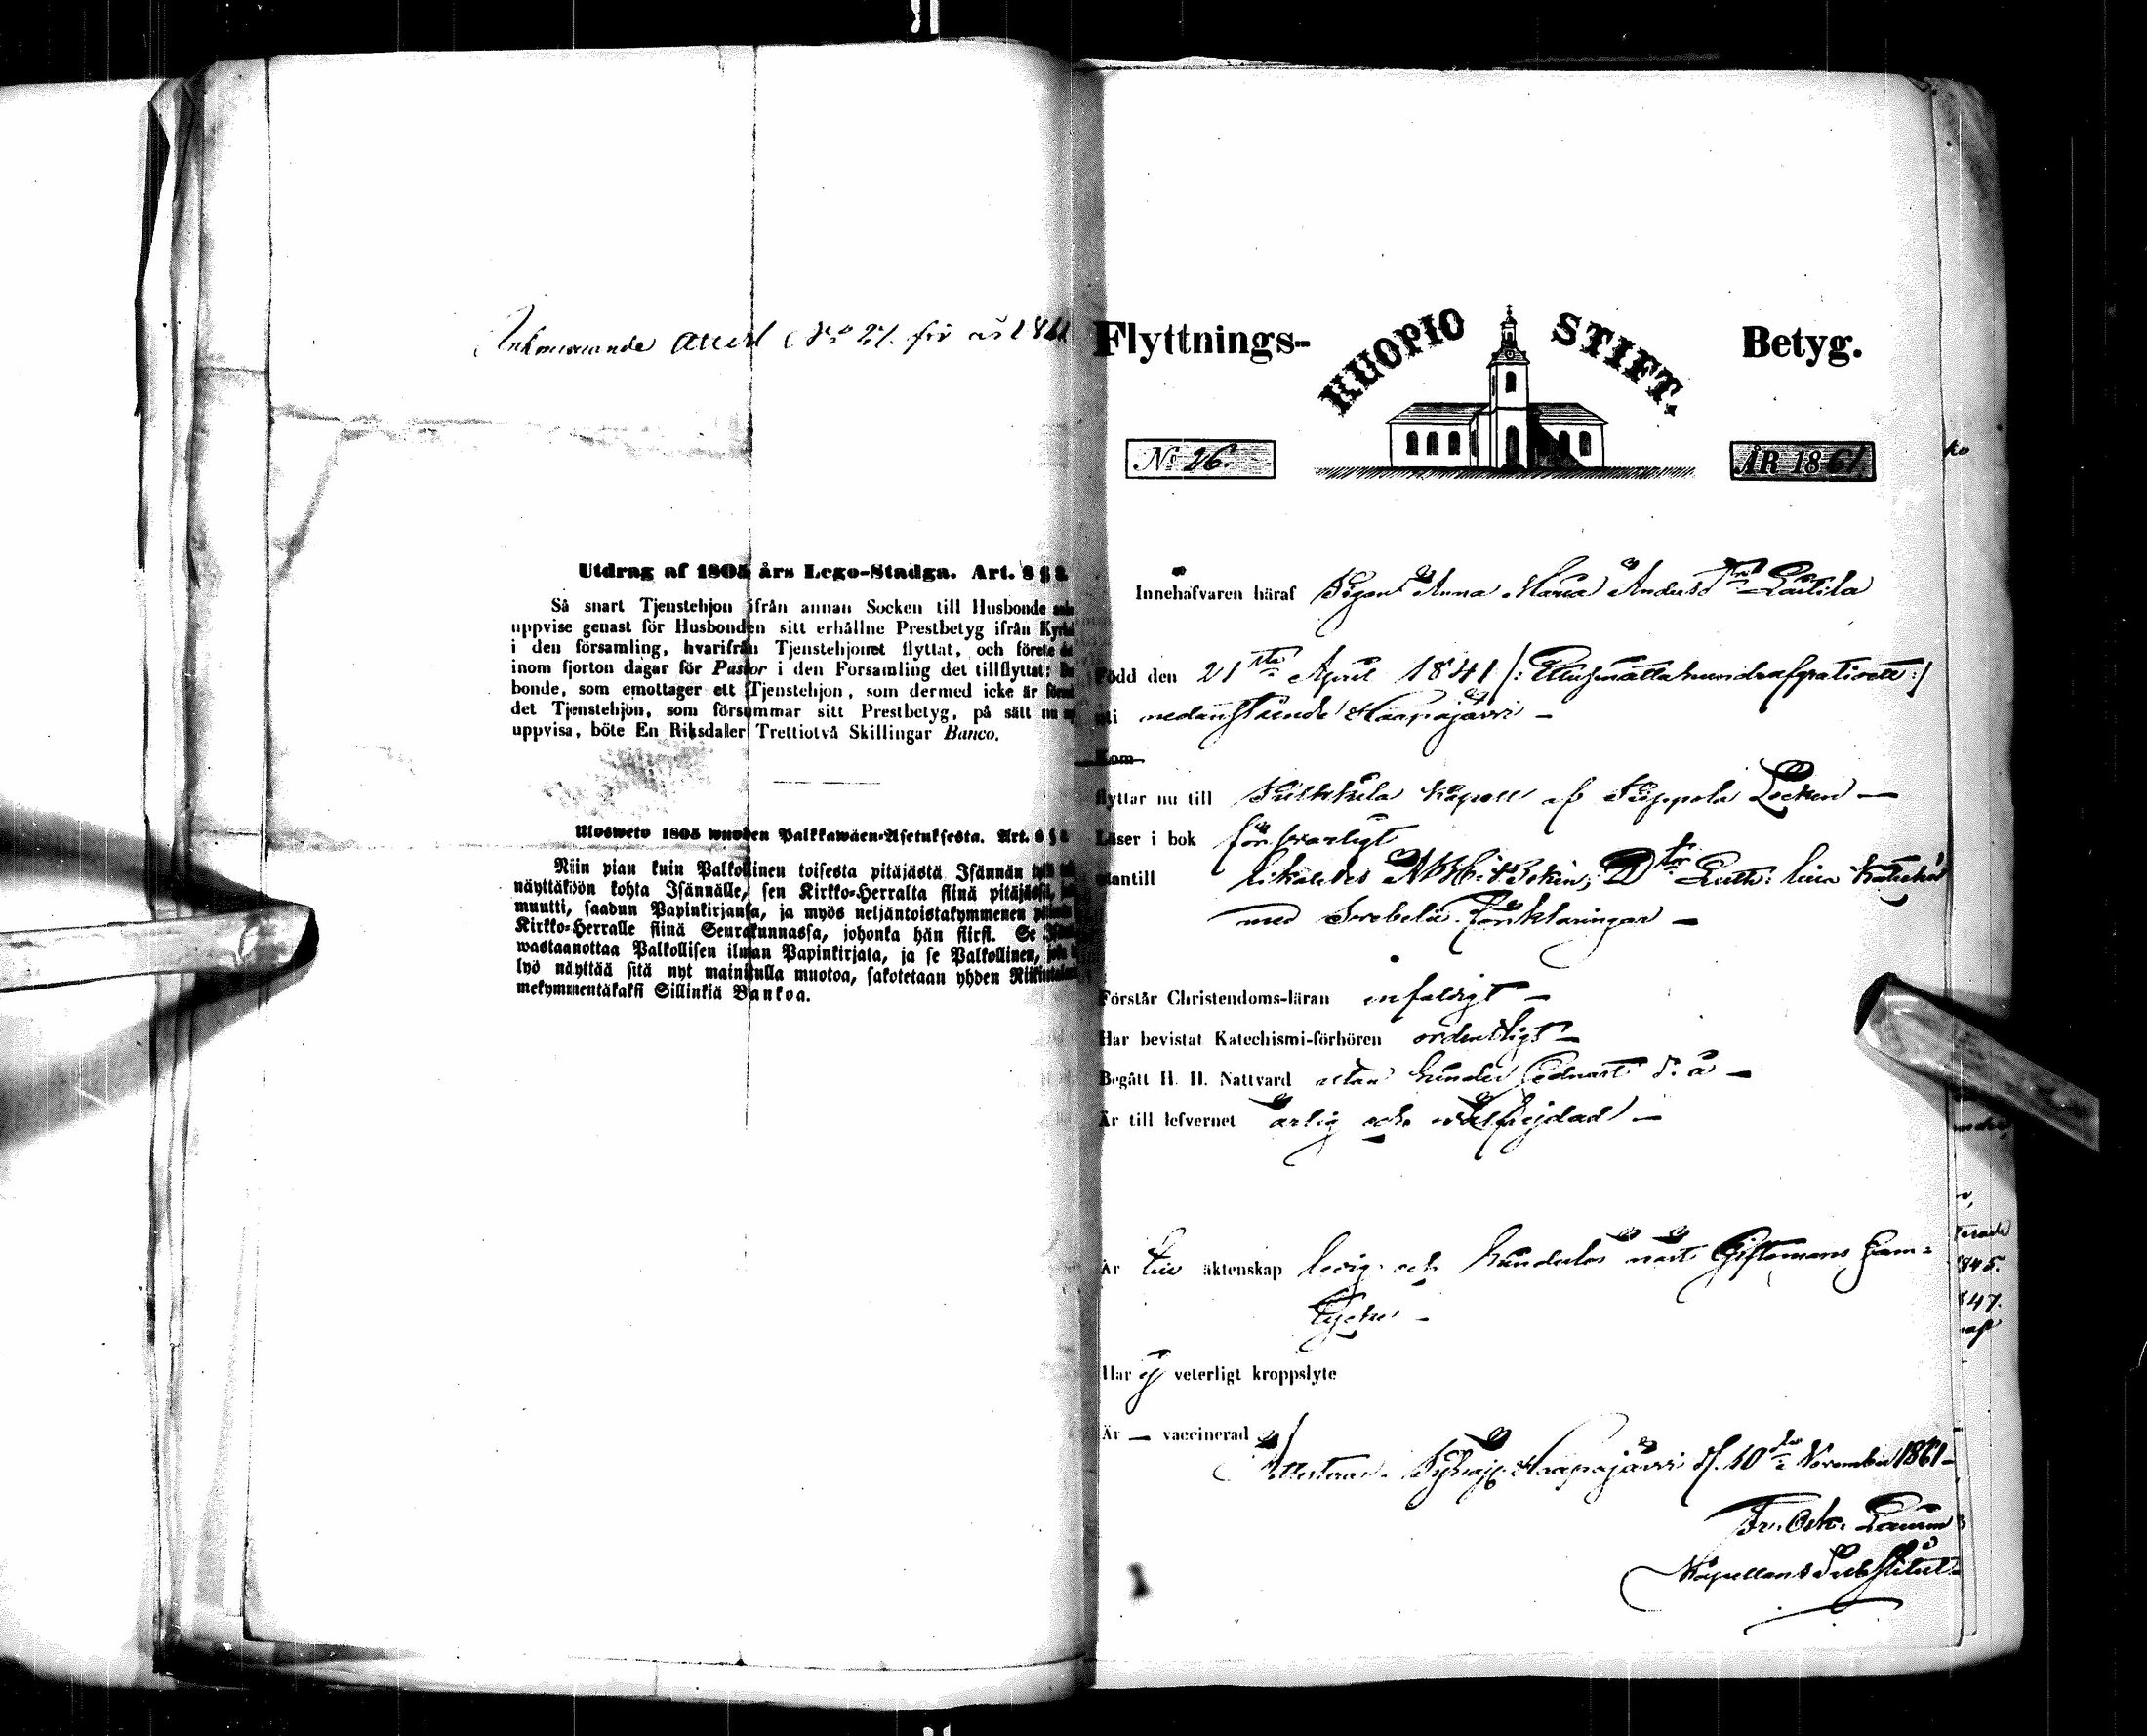 Inkommande attest No 21. för år 1861
Utdrag af 1805 års Lego-Stadga. Art. 8 §
Så snart Tjenstehjon ifrån annan Socken till Husbonde
uppvise genast för Husbonden sitt erhållne Prestbetyg ifrån
i den församling, hvarifrån Tjenstehjonet flyttat, och förete
inom fjorton dagar för Pastor i den Forsamling det tillflyttat:
bonde, som emottager ett Tjenstehjon, som dermed icke är
det Tjenstehjon, som försummar sitt Prestbetyg, på sätt nu
uppvisa, böte En Riksdaler Trettiotvå Skillingar Banco.
Ulosweto 1805 wuoden Palkkawäen-Asetuksesta. Art.
Niin pian kuin Palkollinen toisesta pitäjästä Isännän
näyttäköön kohta Isännälle, sen Kirkko-Herralta siinä pitäjässä,
muutti, saadun Papinkirjansa, ja myös neljäntoistakymmenen
Kirkko-Herralle siinä Seurakunnassa, johonka hän siirsi. Se
wastaanottaa Palkollisen ilman Papinkirjata, ja se Palkollinen,
lyö näyttää sitä nyt mainitulla muotoa, sakotetaan yhden
mekymmentäkaksi Sillinkiä Bankoa.
Flyttnings- KUOPIO STIFT. Betyg.
No 26. ÅR 1861
Innehafvaren häraf Pigan Anna Maria Andersdr Lattila
Född den 21sta April 1841 /: Ettusenåttahundrafyrationett :/
uti nedanstående Haapajärvi —
Kom
flyttar nu till Pulkkila Kapell af Piippola Socken —
Läser i bok försvarligt
utantill likaledes ABC-Boken, Dtor Luth: lilla
med Svebelii förklaringar —
Förstår Christendoms-läran enfaldigt —
Har bevistat Katechismi-förhören ordentligt —
Begått H. H. Nattvard utan hinder sednast d. å —
Är till lefvernet ärlig och välfrejdad —
Är till äktenskap ledig och hinderlös näst Giftomans Sam-
tycke —
Har ej veterligt kroppslyte
Är — vaccinerad
Attesterar. Haapajärvi d. 10de November 1861 —
Fr. Osk.
Kapellans Substitut.